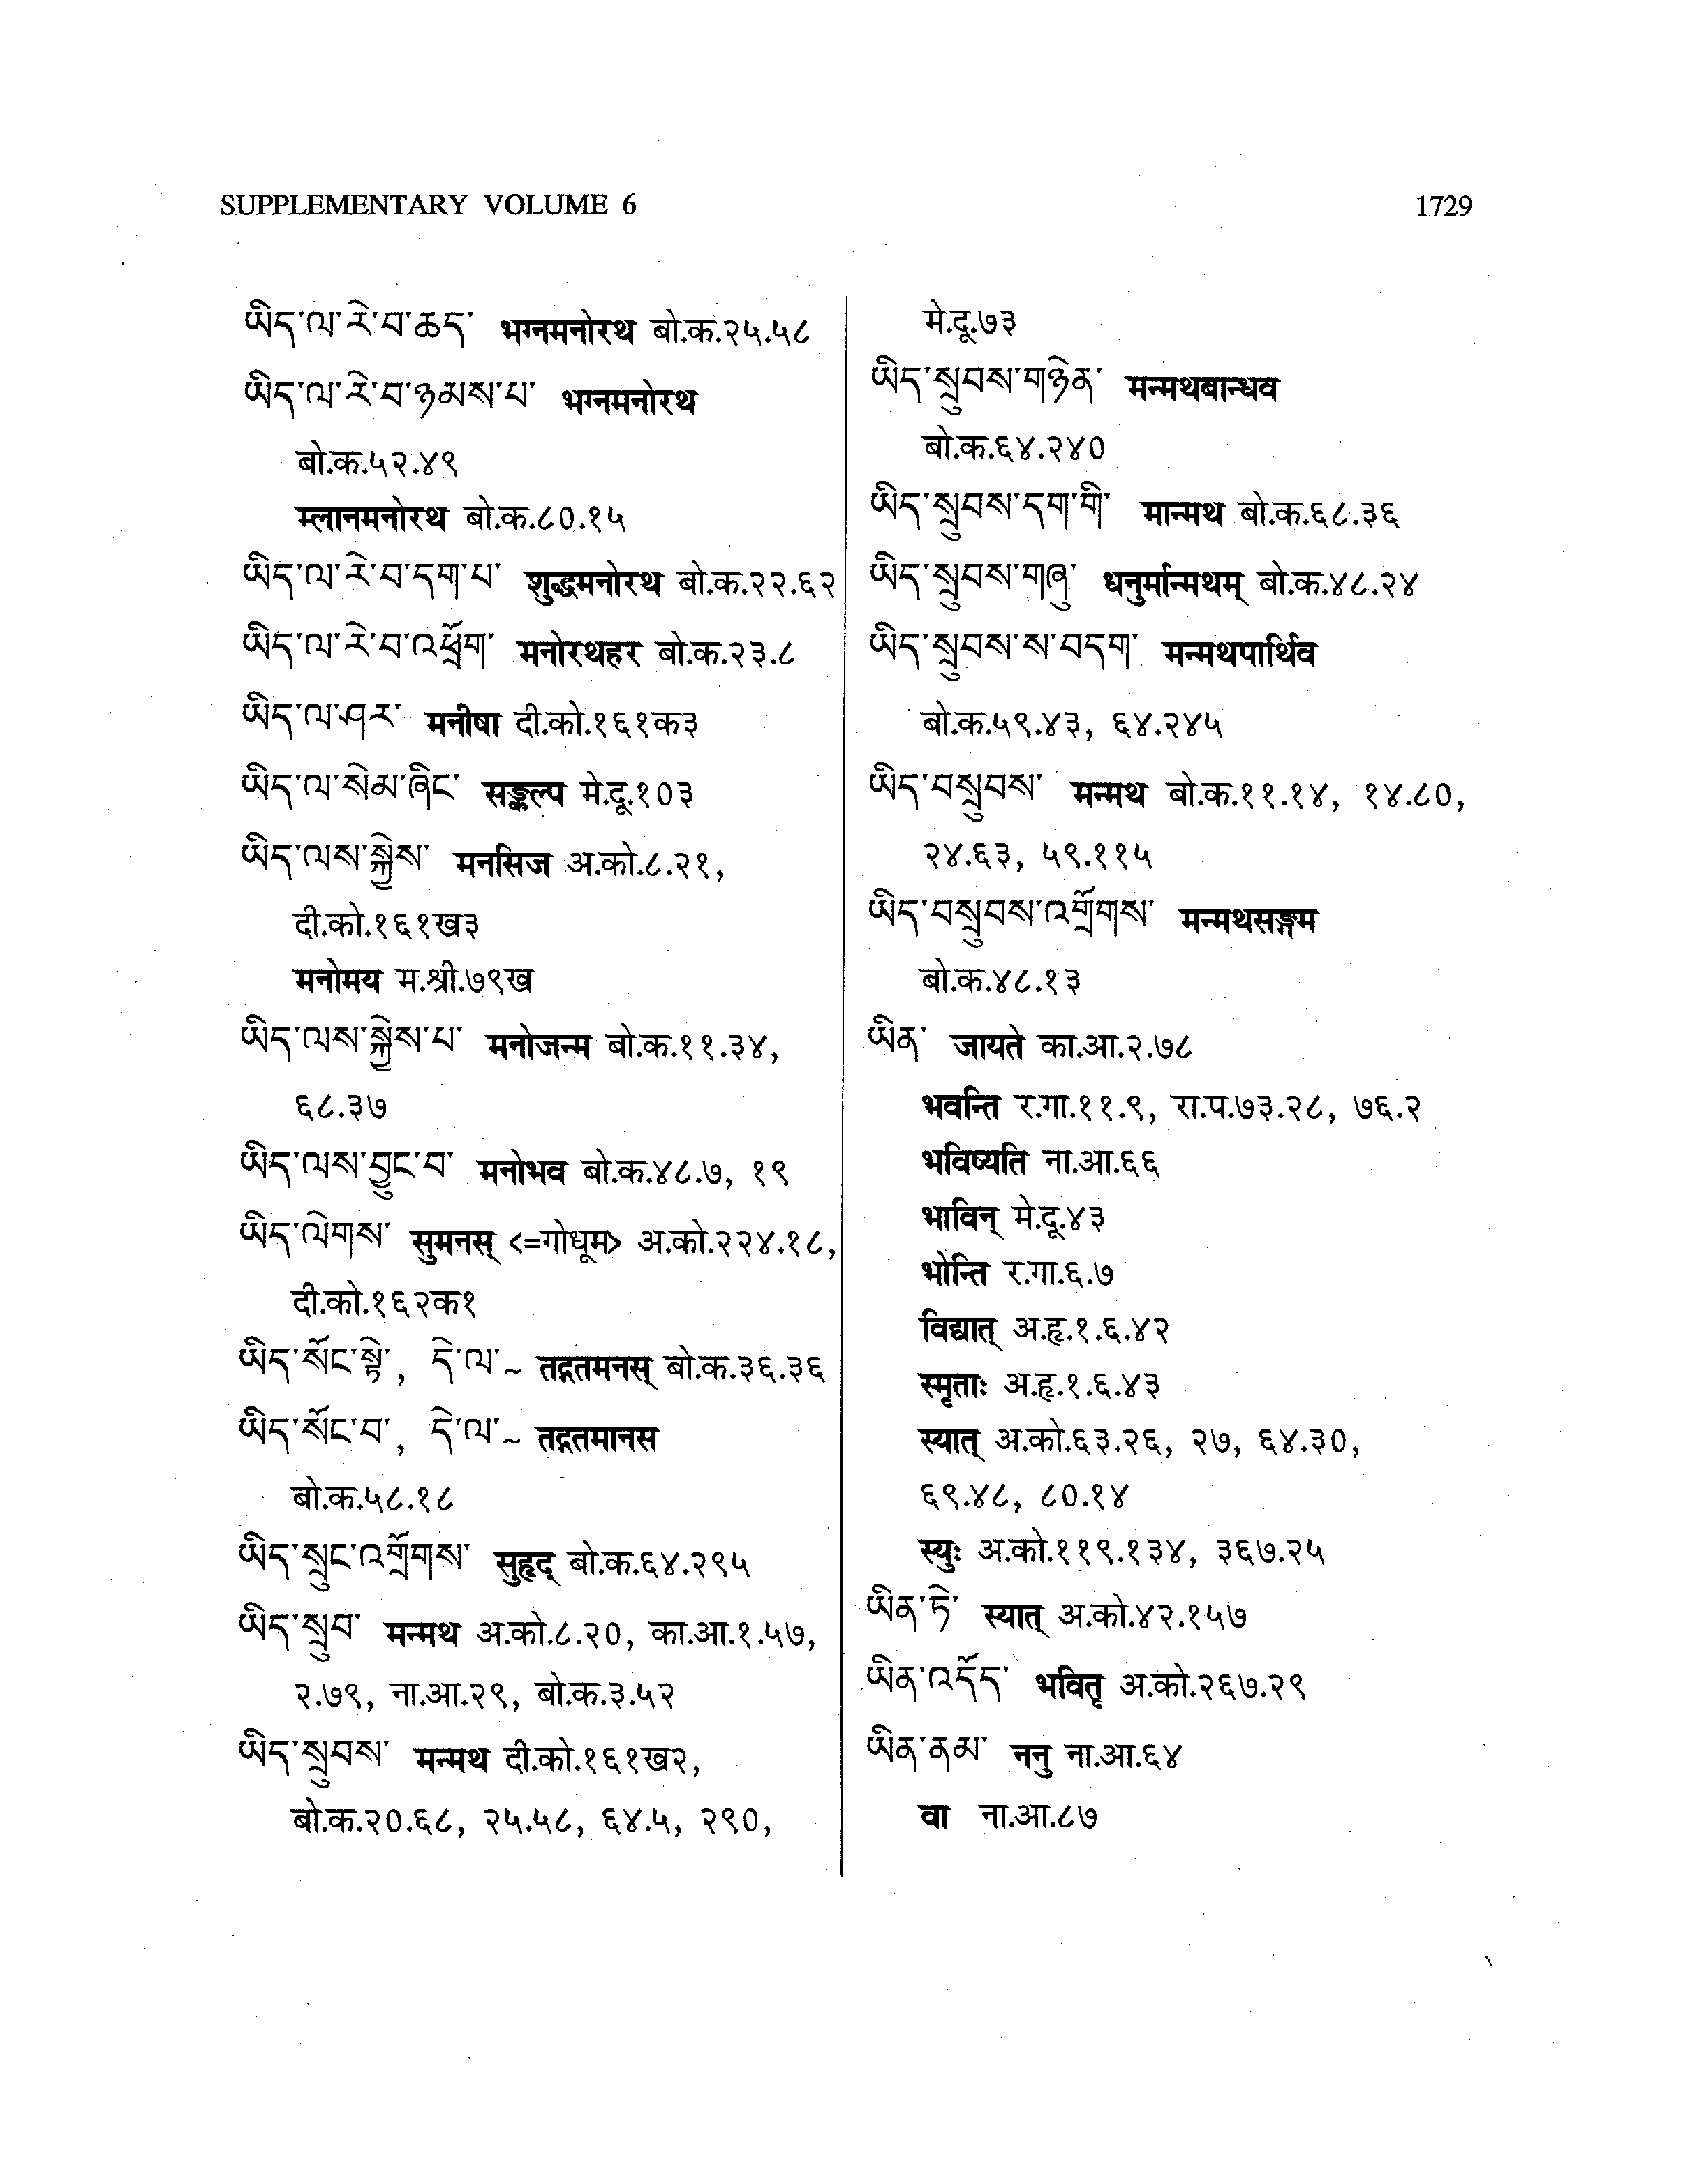 SUPPLEMENTARY VOLUME 6
1729
ཡིད་ལ་རེ་བ་ཆད་ भग्नमनोरथ बो.क.२५.५८
ཡིད་ལ་རེ་བ་ཉམས་པ་ भग्नमनोरथ
बो.क.५२.४९
म्लानमनोरथ बो.क.८०.१५
ཡིད་ལ་རེ་བ་དག་པ་ शुद्धमनोरथ बो.क.२२.६२
ཡིད་ལ་རེ་བ་འཕྲོག་ मनोरथहर बो.क.२३.८
ཡིད་ལ་ཤར་ मनीषा दी.को.१६१क३
ཡིད་ལ་སེམ་ཞིང་ सङ्कल्प मे.दू.१०३
ཡིད་ལས་སྐྱེས་ मनसिज अ.को.८.२१,
दी.को.१६१ख३
मनोमय म.श्री.७९ख
ཡིད་ལས་སྐྱེས་པ་ मनोजन्म बो.क.११.३४,
६८.३७
ཡིད་ལས་བྱུང་བ་ मनोभव बो.क.४८.७, १९
ཡིད་ལེགས་ सुमनस् <=गोधूम> अ.को.२२४.१८,
दी.को.१६२क१
ཡིད་སོང་སྟེ་, དེ་ལ་~ तद्गतमनस् बो.क.३६.३६
ཡིད་སོང་བ་, དེ་ལ་~ तद्गतमानस
बो.क.५८.१८
ཡིད་སྲུང་འགྲོགས་ सुहृद् बो.क.६४.२९५
ཡིད་སྲུབ་ मन्मथ अ.को.८.२०, का.आ.१.५७,
२.७९, ना.आ.२९, बो.क.३.५२
ཡིད་སྲུབས་ मन्मथ दी.को.१६१ख२,
बो.क.२०.६८, २५.५८, ६४.५, २९०,
मे.दू.७३
ཡིད་སྲུབས་གཉེན་ मन्मथबान्धव
बो.क.६४.२४०
ཡིད་སྲུབས་དག་གི་ मान्मथ बो.क.६८.३६
ཡིད་སྲུབས་གཞུ་ धनुर्मान्मथम् बो.क.४८.२४
ཡིད་སྲུབས་ས་བདག་ मन्मथपार्थिव
बो.क.५९.४३, ६४.२४५
ཡིད་བསྲུབས་ मन्मथ बो.क.११.१४, १४.८०,
२४.६३, ५९.११५
ཡིད་བསྲུབས་འགྲོགས་ मन्मथसङ्गम
बो.क.४८.१३
ཡིན་ जायते का.आ.२.७८
भवन्ति र.गा.११.९, रा.प.७३.२८, ७६.२
भविष्यति ना.आ.६६
भाविन् मे.दू.४३
भोन्ति र.गा.६.७
विद्यात् अ.हृ.१.६.४२
स्मृताः अ.हृ.१.६.४३
स्यात् अ.को.६३.२६, २७, ६४.३०,
६९.४८, ८०.१४
स्युः अ.को.११९.१३४, ३६७.२५
ཡིན་ཏེ་ स्यात् अ.को.४२.१५७
ཡིན་འདོད་ भवितृ अ.को.२६७.२९
ཡིན་ནམ་ ननु ना.आ.६४
वा ना.आ.८७